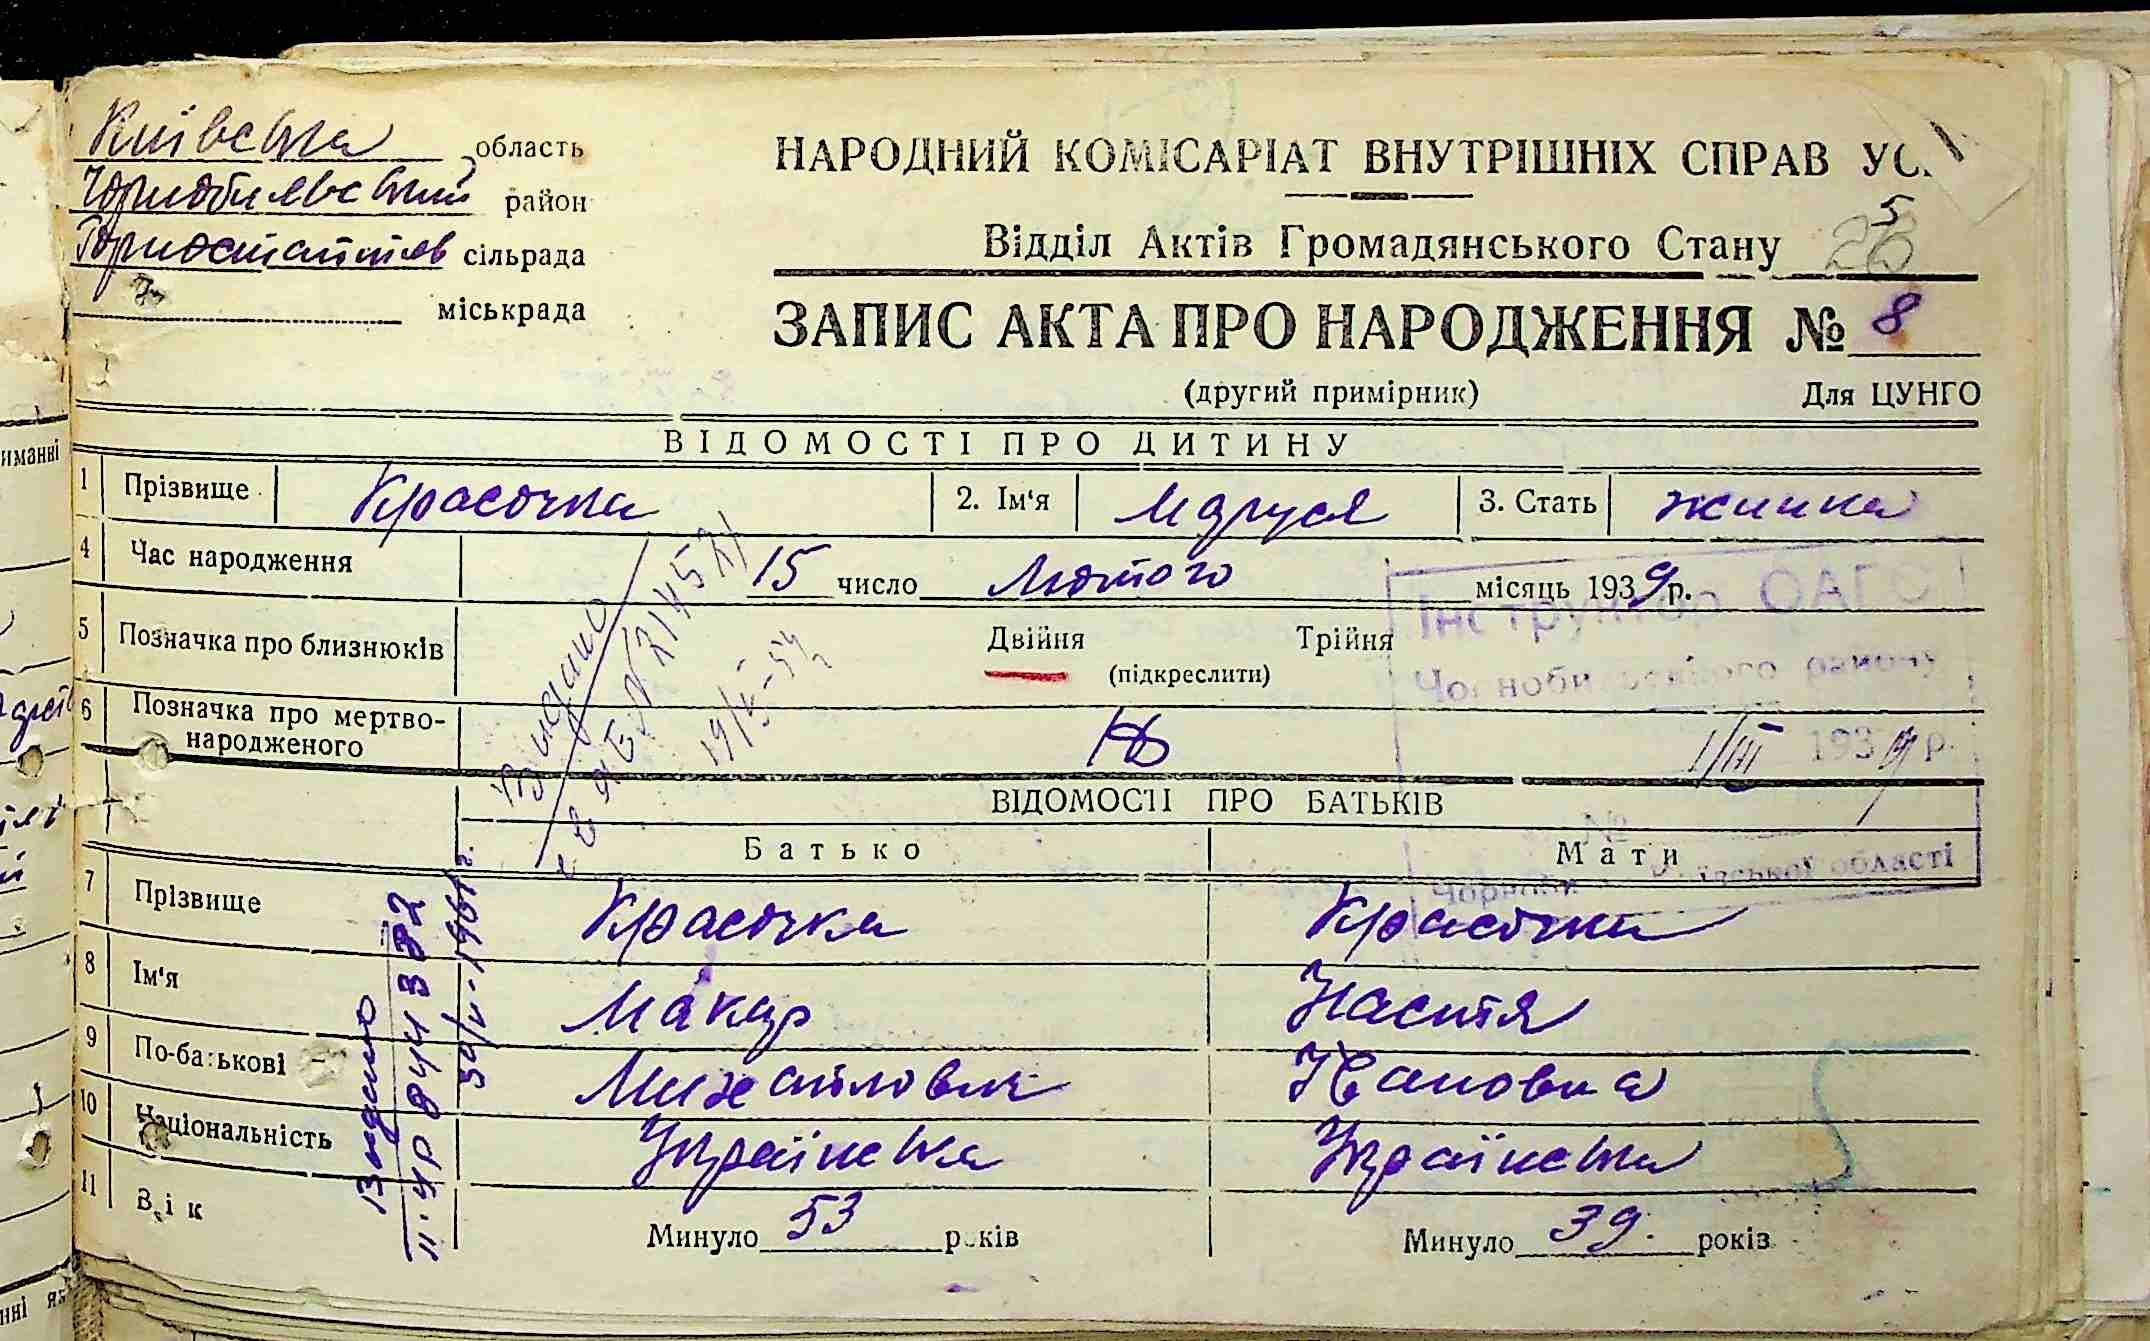 Київська область
Чорнобильський район
Горностайпів сільрада
міськрада
НАРОДНИЙ КОМІСАРІАТ ВНУТРІШНІХ СПРАВ УС
5
Відділ Актів Громадянського Стану
ЗАПИС АКТА ПРО НАРОДЖЕННЯ № 8
(другий примірник) Для ЦУНГО
ВІДОМОСТІ ПРО ДИТИНУ
1 Прізвище Красочка 2. Ім'я Маруся 3. Стать жинка
4 Час народження 15 число Лютого місяць 1939 р.
5 Позначка про близнюків Двійня Трійня
(підкреслити)
6 Позначка про мертвонародженого
Інструктор ОАГС
Чорнобильського району
1/III 1939 р.
№
області
Видано
19/V-54
ВІДОМОСТІ ПРО БАТЬКІВ
Батько Мати
7 Прізвище Красочка Красочка
8 Ім'я Макар Настя
9 По-батькові Михайлович Ивановна
10 Національність Українська Українська
11 Вік Минуло 53 років Минуло 39. років
Видано
II-УР 8411382
30/V-1961 г.